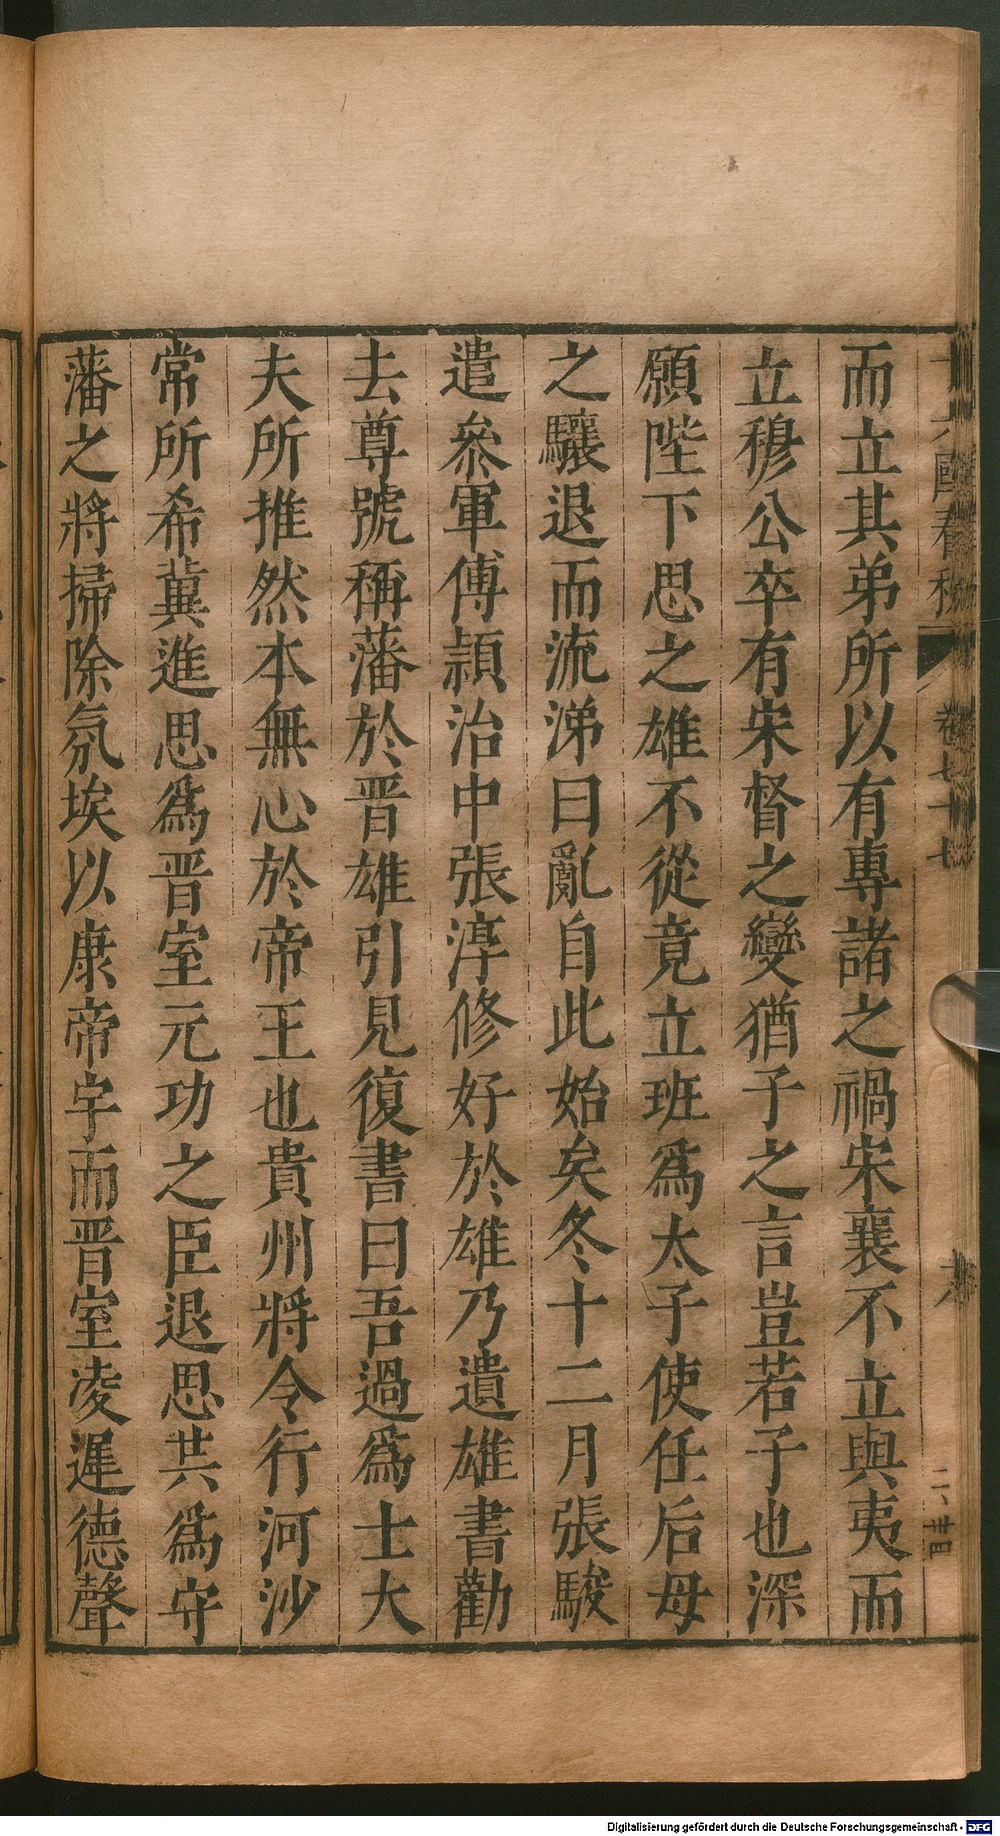 十六國春秋 卷七十七 六
而立其弟所以有專諸之禍宋襄不立與夷而
立穆公卒有宋督之變猶子之言豈若子也深
願陛下思之雄不從竟立班爲太子使任后母
之驤退而流涕曰亂自此始矣冬十二月張駿
遣叅軍傅頴治中張淳修好於雄乃遺雄書勸
去尊號稱藩於晋雄引見復書曰吾過爲士大
夫所推然本無心於帝王也貴州將令行河沙
常所希冀進思爲晋室元功之臣退思共爲守
藩之將掃除氛埃以康帝宇而晋室凌遲德聲
Digitalisierung gefördert durch die Deutsche Forschungsgemeinschaft - DFG